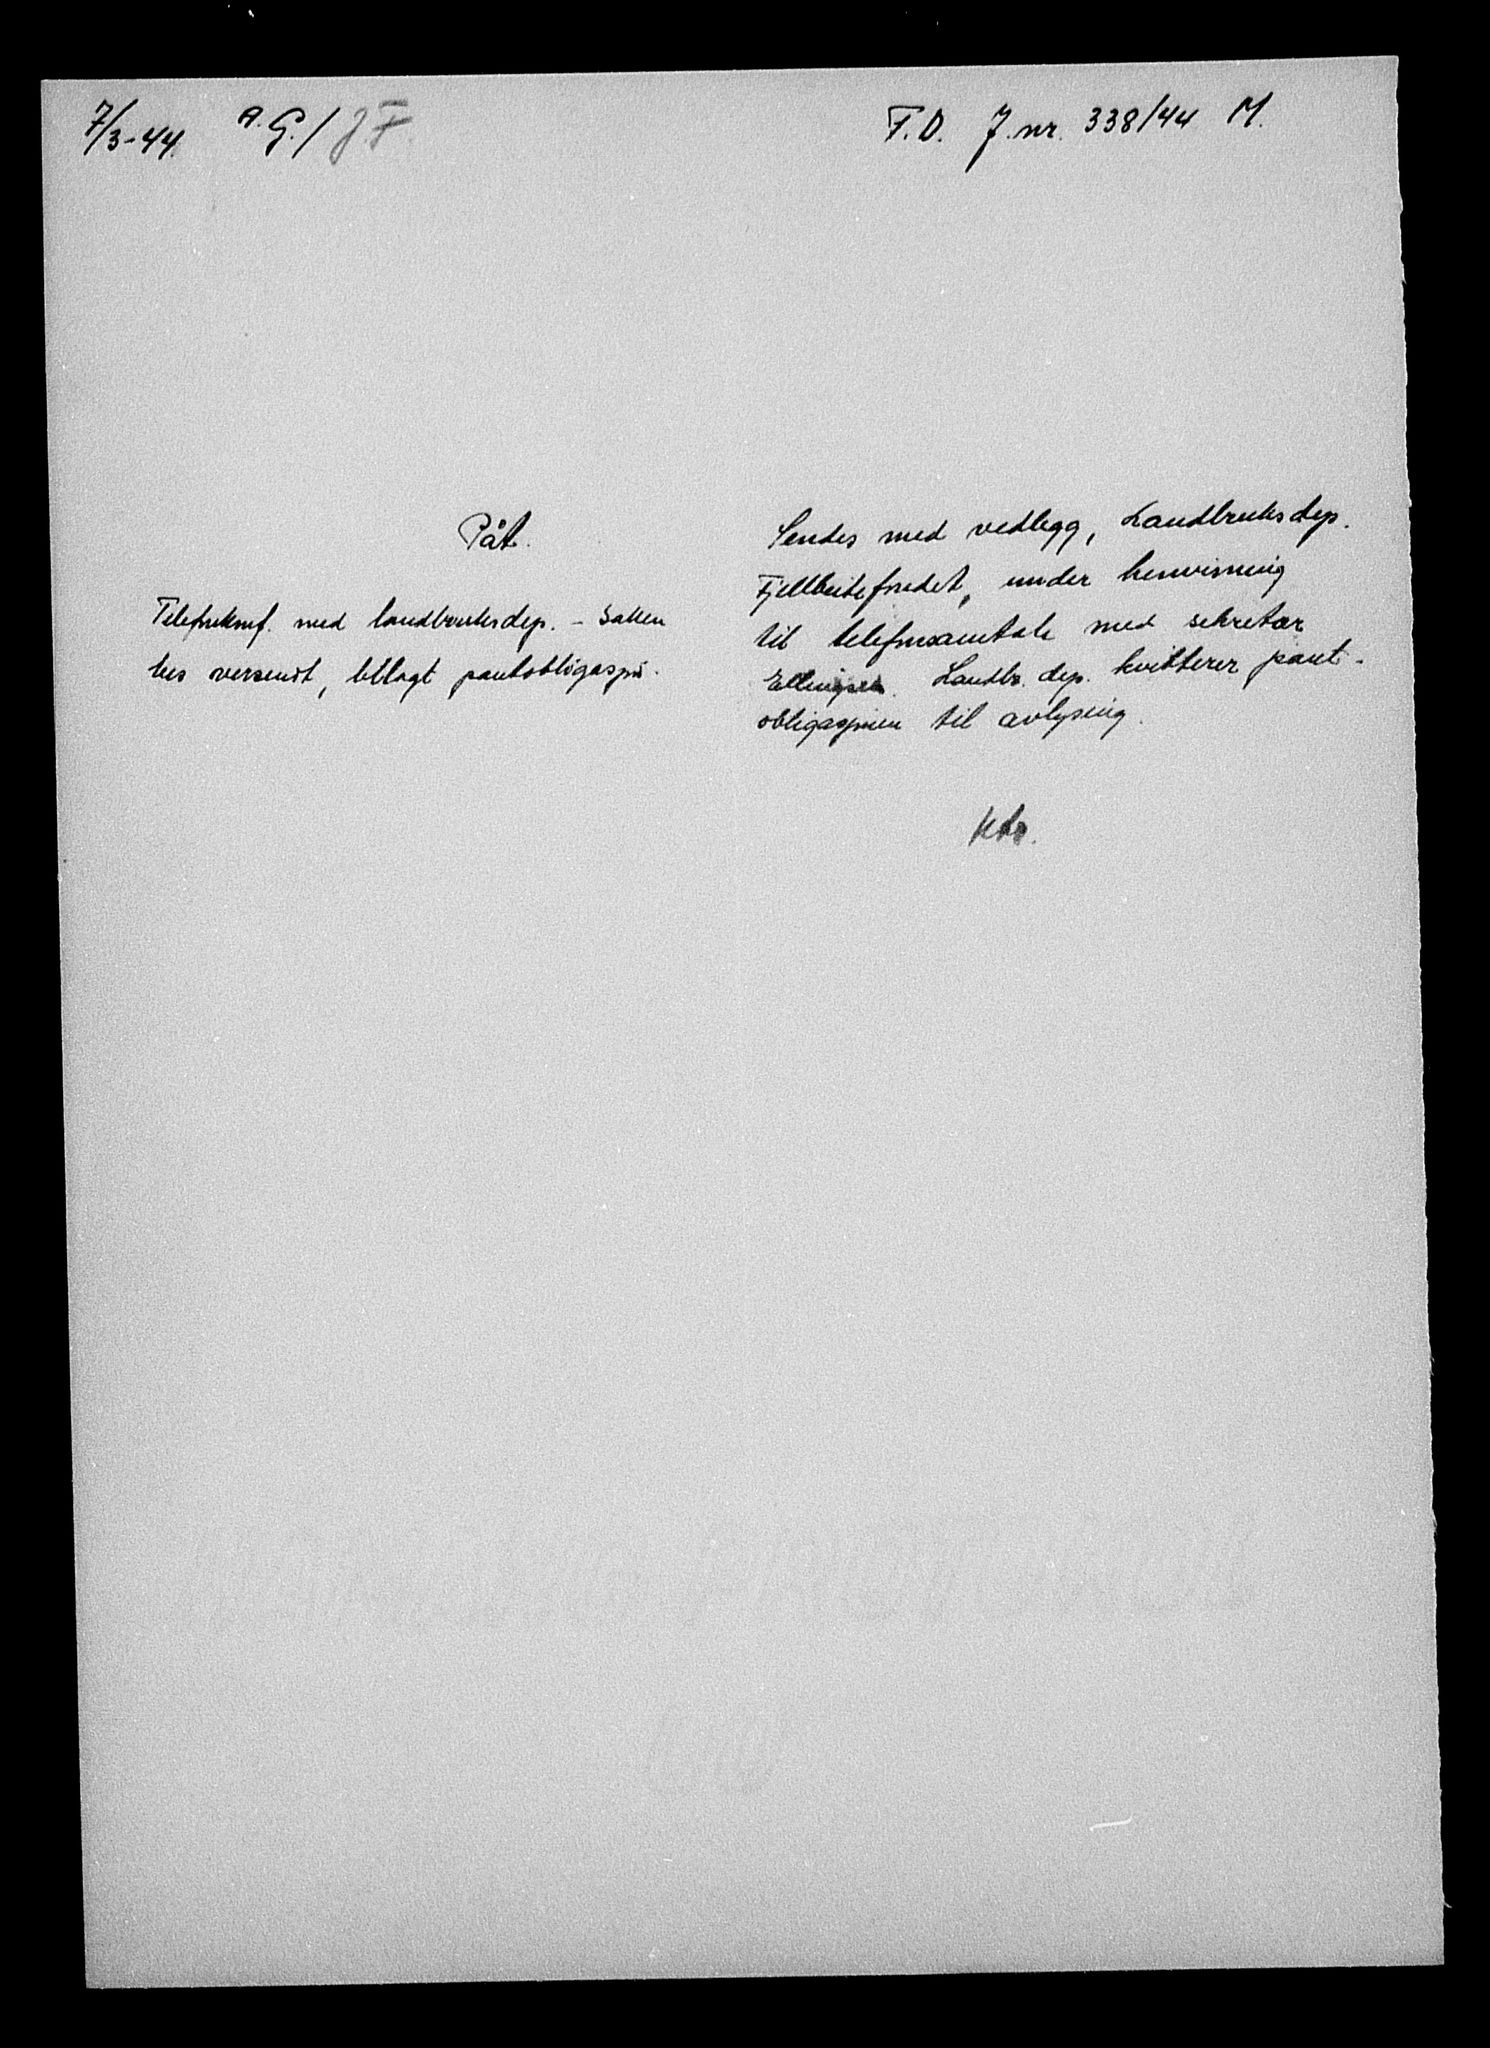 7/3-44. A.G./J.F. F.D. J.nr. 338/44 M.
Påt.
Telefonkonf. med landbruksdep. - Saken
bes versendt, bilagt pantobligasjon.
Sendes med vedlegg, Landbruksdep.
Fjellbeitefondet, under henvisning
til telefonsamtale med sekretær
Ellingsen. Landbr. dep. kvitterer pant-
obligasjonen til avlysing.